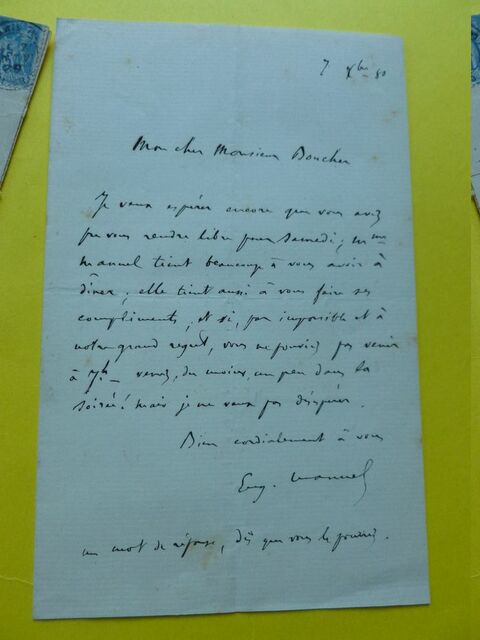 7 xbre 80
Mon cher Monsieur Boucher
Je veux espérer encore que vous avez
pu vous rendre libre pour Samedi ; Mme
Manuel tient beaucoup à vous avoir à
dîner ; elle tient aussi à vous faire ses
compliments, et si, par impossible et à
notre grand regret, vous ne pouviez pas venir
à 7h– venez, du moins, un peu dans la
soirée ! Mais je ne veux pas désespérer.
Bien cordialement à vous
Eug. Manuel
un mot de réponse, dès que vous le pourrez.